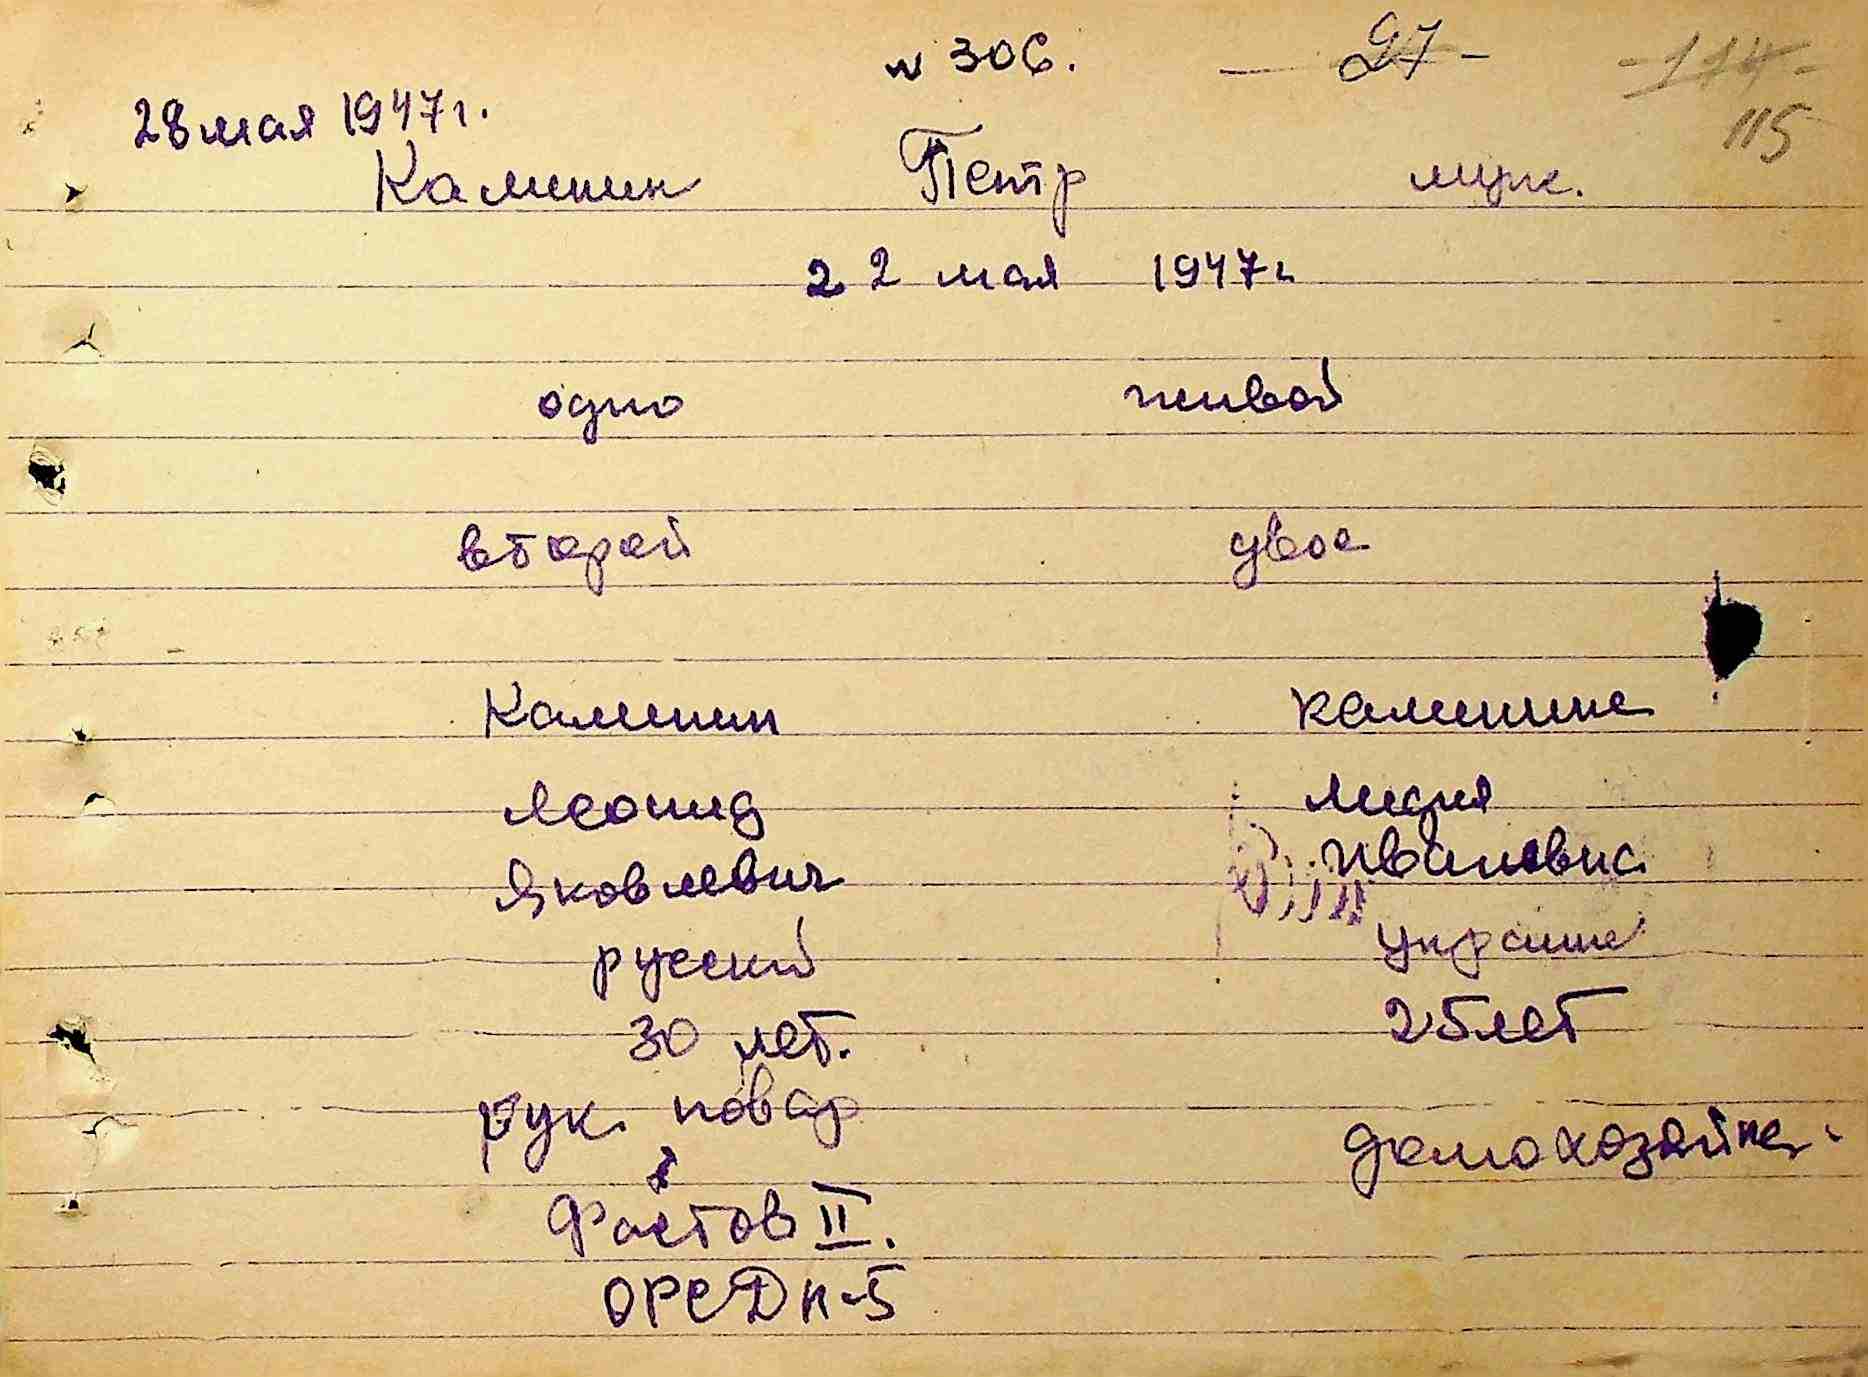 N 306. - 97 - - 114 -
28 мая 1947 г. 115
Калинин Петр муж.
22 мая 1947 г
одно живой
второй двое
Калинин Калинина
Леонид Лидия
Яковлевич Ивановна
русский украин
30 лет. 25 лет
рук. повар домохозяйка.
Фастов II.
ОРС ДН-5